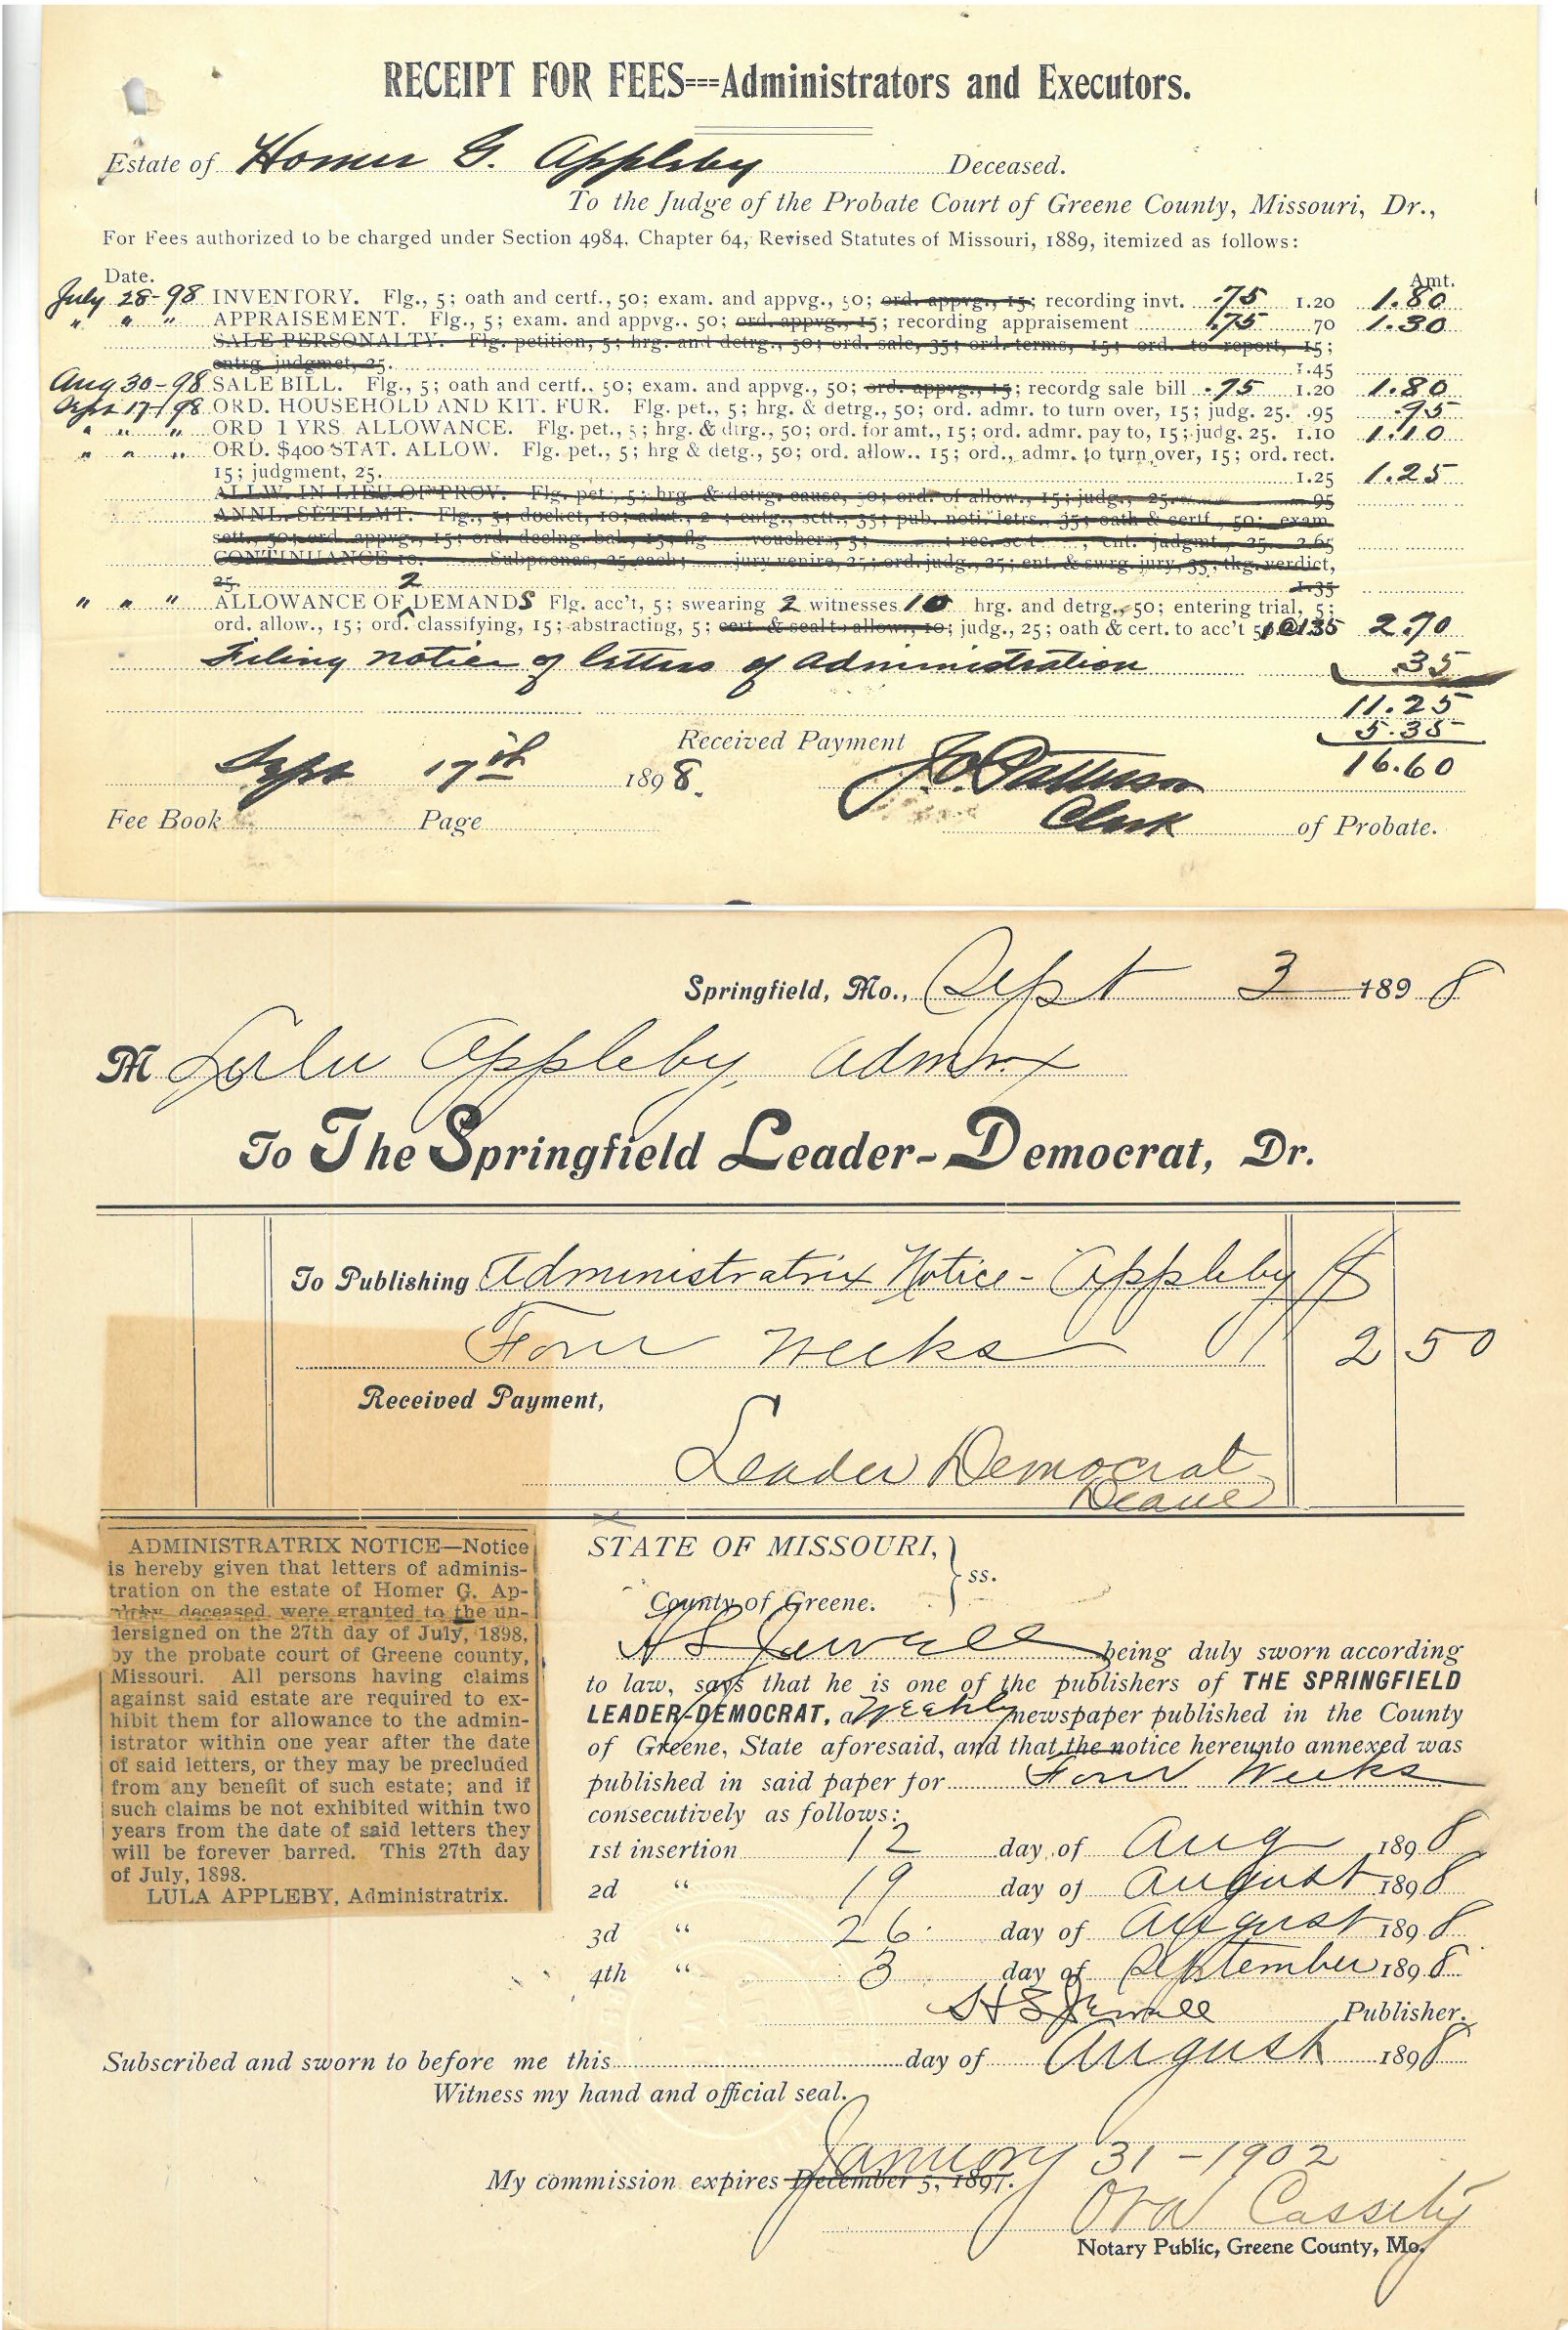 RECEIPT FOR FEES===Administrators and Executors.
Estate of Homer G. Appleby Deceased.
To the Judge of the Probate Court of Greene County, Missouri, Dr.,
For Fees authorized to be charged under Section 4984, Chapter 64, Revised Statutes of Missouri, 1889, itemized as follows:
Date. Amt.
July 28-98 INVENTORY. Flg., 5; oath and certf., 50; exam. and appvg., 50; ord. appvg., 15; recording invt. .75 1.20 1.80
" " " APPRAISEMENT. Flg., 5; exam. and appvg., 50; ord. appvg., 15; recording appraisement .75 70 1.30
SALE PERSONALTY. Flg. petition, 5; hrg. and detrg., 50; ord. sale, 35; ord. terms, 15; ord. to report, 15;
entrg. judgmet, 25. 1.45
Aug 30-98 SALE BILL. Flg., 5; oath and certf., 50; exam. and appvg., 50; ord. appvg., 15; recordg sale bill .75 1.20 1.80
Sept 17-/98 ORD. HOUSEHOLD AND KIT. FUR. Flg. pet., 5; hrg. & detrg., 50; ord. admr. to turn over, 15; judg. 25. .95 .95
" " " ORD 1 YRS. ALLOWANCE. Flg. pet., 5; hrg. & dtrg., 50; ord. for amt., 15; ord. admr. pay to, 15; judg. 25. 1.10 1.10
" " " ORD. $400 STAT. ALLOW. Flg. pet., 5; hrg & detg., 50; ord. allow.. 15; ord., admr. to turn over, 15; ord. rect.
15; judgment, 25. 1.25 1.25
ALLW. IN LIEU OF PROV. Flg. pet., 5; hrg. & detrg. cause, 50; ord. of allow., 15; judg., 25. 95
ANNL. SETTLMT. Flg., 5; docket, 10; advt., 2 ; entg., sett., 35; pub. noti. letrs., 35; oath & certf., 50; exam
sett., 50; ord. appvg., 15; ord. declng. bal., 15; flg vouchers, 5; ; rec. se.t , ent. judgmt., 25. 2.65
CONTINUANCE 10. Subpoenas, 25 each; jury venire, 25; ord. judg., 25; ent. & swrg. jury, 35; tkg. verdict,
25. 1.35
" " " ALLOWANCE OF 2 DEMANDS Flg. acc't, 5; swearing 2 witnesses 10 hrg. and detrg., 50; entering trial, 5;
ord. allow., 15; ord. classifying, 15; abstracting, 5; cert. & seal to allow., 10; judg., 25; oath & cert. to acc't @135 2.70
Filing notice of letters of administration .35
11.25
5.35
Received Payment 16.60
Sept 17th 1898. J.O. Patterson
Clerk of Probate.
Fee Book Page
Springfield, Mo., Sept 3 1898
M Lulu Appleby, Admrx
To The Springfield Leader-Democrat, Dr.
To Publishing Administratrix Notice - Appleby $
Four Weeks 2 50
Received Payment,
Leader Democrat
Deane
ADMINISTRATRIX NOTICE—Notice
is hereby given that letters of adminis-
tration on the estate of Homer G. Ap-
deceased, were granted to the un-
dersigned on the 27th day of July, 1898,
by the probate court of Greene county,
Missouri. All persons having claims
against said estate are required to ex-
hibit them for allowance to the admin-
istrator within one year after the date
of said letters, or they may be precluded
from any benefit of such estate; and if
such claims be not exhibited within two
years from the date of said letters they
will be forever barred. This 27th day
of July, 1898.
LULA APPLEBY, Administratrix.
STATE OF MISSOURI, } ss.
County of Greene.
H S Jewell being duly sworn according
to law, says that he is one of the publishers of THE SPRINGFIELD
LEADER-DEMOCRAT, a Weekly newspaper published in the County
of Greene, State aforesaid, and that the notice hereunto annexed was
published in said paper for Four Weeks
consecutively as follows:
1st insertion 12 day of Aug 1898
2d " 19 day of August 1898
3d " 26 day of August 1898
4th " 3 day of September 1898
H S Jewell Publisher.
Subscribed and sworn to before me this day of August 1898
Witness my hand and official seal.
January 31-1902
My commission expires December 5, 1897.
Ora Cassity
Notary Public, Greene County, Mo.